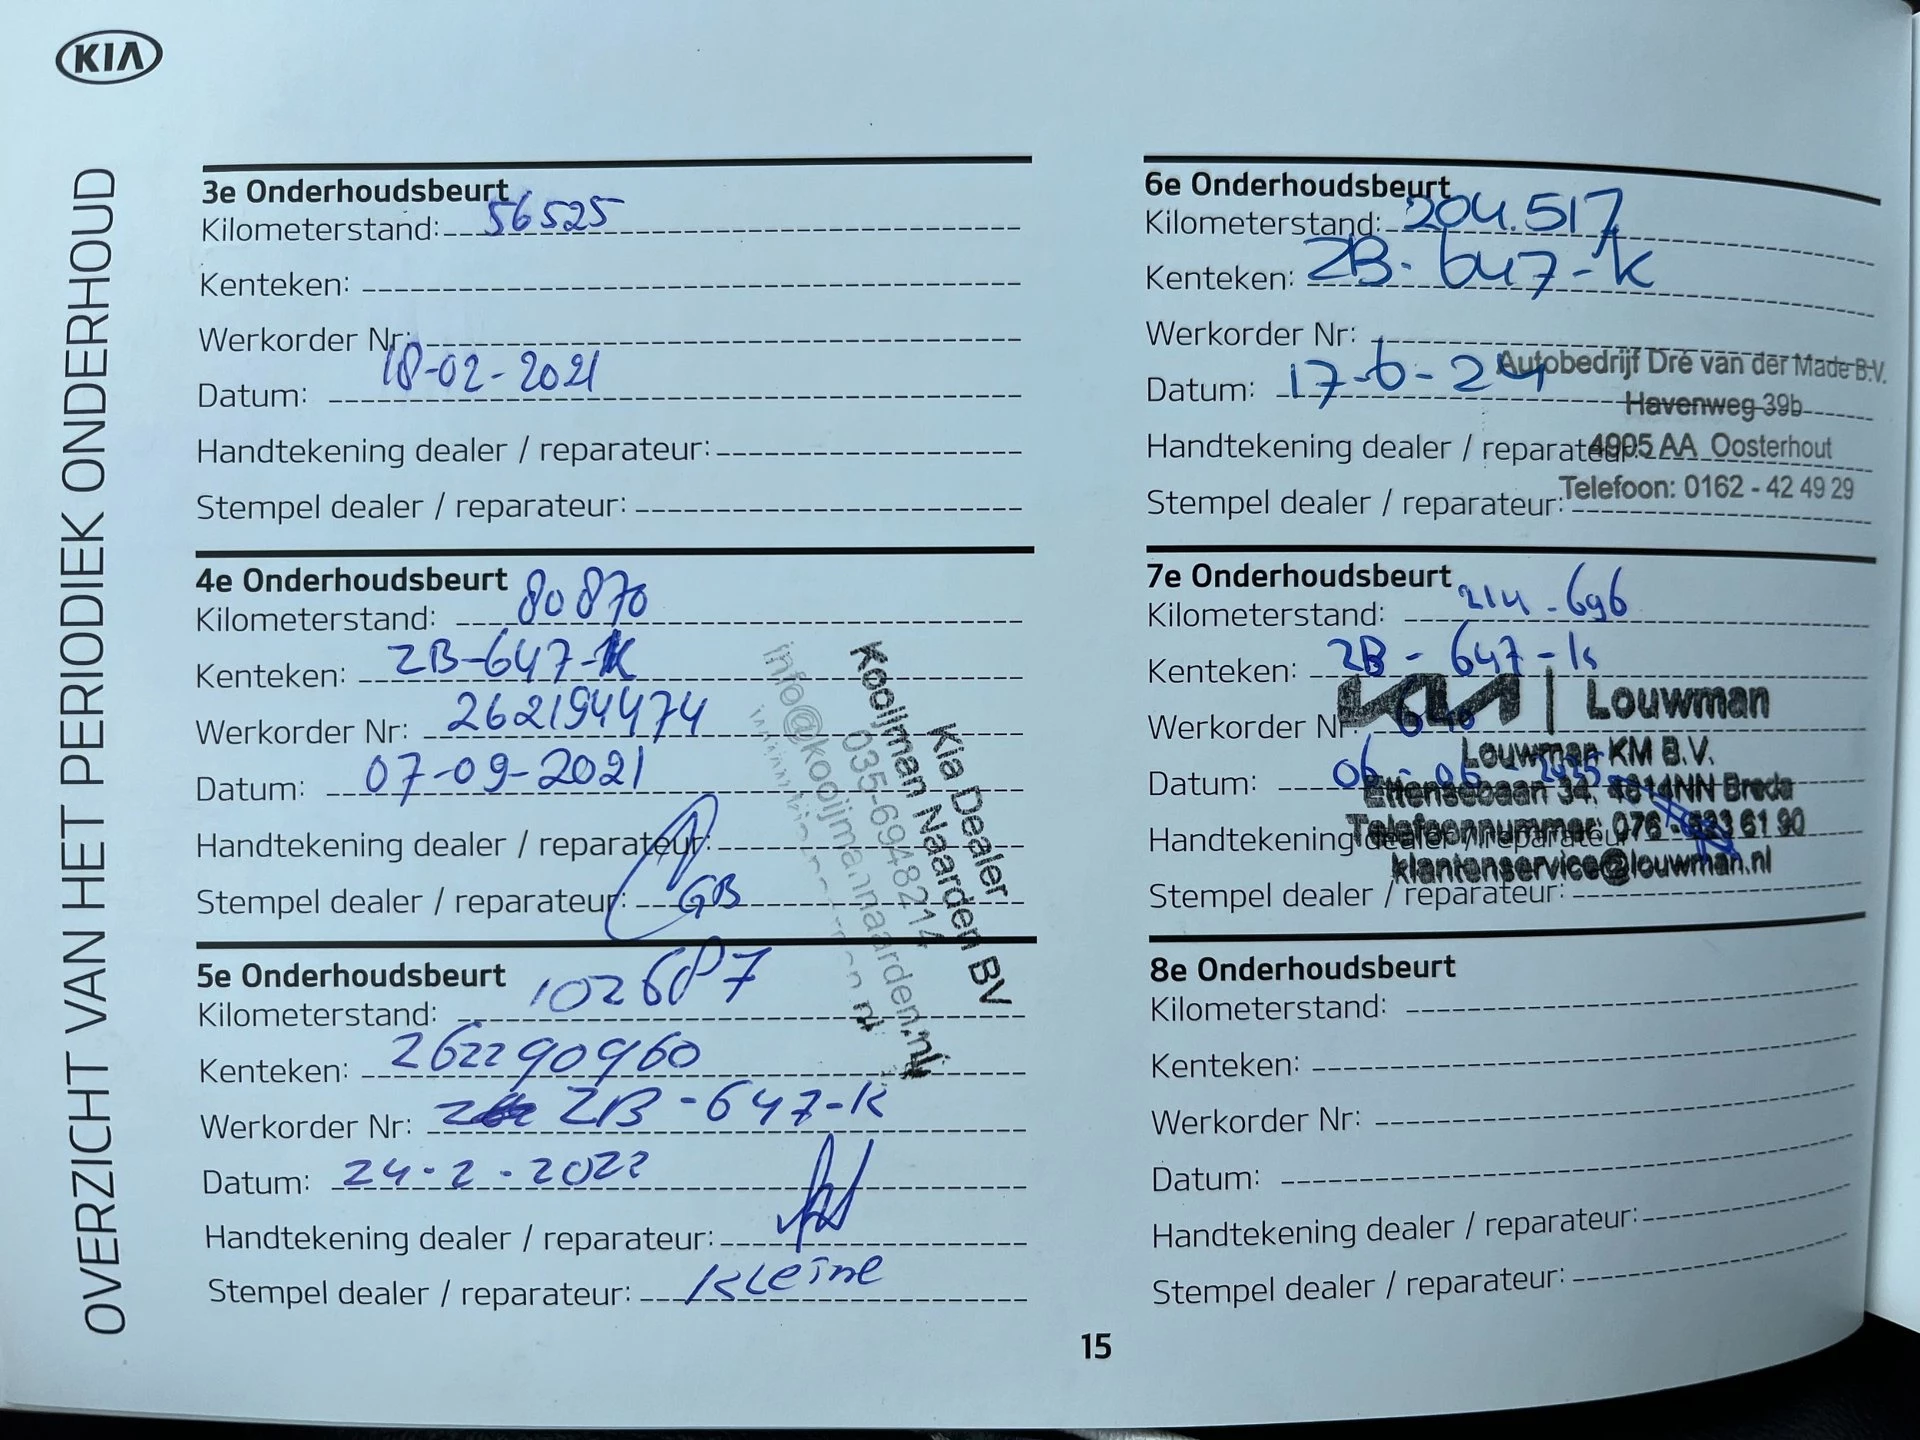 KIA
OVERZICHT VAN HET PERIODIEK ONDERHOUD
3e Onderhoudsbeurt
Kilometerstand: 56525
Kenteken:
Werkorder Nr:
Datum: 18-02-2021
Handtekening dealer / reparateur:
Stempel dealer / reparateur:
4e Onderhoudsbeurt
Kilometerstand: 80870
Kenteken: ZB-647-K
Werkorder Nr: 262194474
Datum: 07-09-2021
Handtekening dealer / reparateur:
Stempel dealer / reparateur: GB
Kia Dealer
Kooijman Naarden BV
035-6948214
info@kooijmannaarden.nl
5e Onderhoudsbeurt
Kilometerstand: 102687
Kenteken: 262290960
Werkorder Nr: ZB-647-K
Datum: 24-2-2022
Handtekening dealer / reparateur:
Stempel dealer / reparateur: Kleine
6e Onderhoudsbeurt
Kilometerstand: 204.517
Kenteken: ZB-647-K
Werkorder Nr:
Datum: 17-6-24
Handtekening dealer / reparateur:
Stempel dealer / reparateur:
Autobedrijf Dré van der Made B.V.
Havenweg 39b
4905 AA Oosterhout
Telefoon: 0162 - 42 49 29
7e Onderhoudsbeurt
Kilometerstand: 214-696
Kenteken: ZB-647-K
Werkorder Nr:
Datum: 06-06-2025
Handtekening dealer / reparateur:
Stempel dealer / reparateur:
KIA | Louwman
Louwman KM B.V.
Ettensebaan 34, 4814NN Breda
Telefoonnummer: 076 - 523 61 90
klantenservice@louwman.nl
8e Onderhoudsbeurt
Kilometerstand:
Kenteken:
Werkorder Nr:
Datum:
Handtekening dealer / reparateur:
Stempel dealer / reparateur:
15